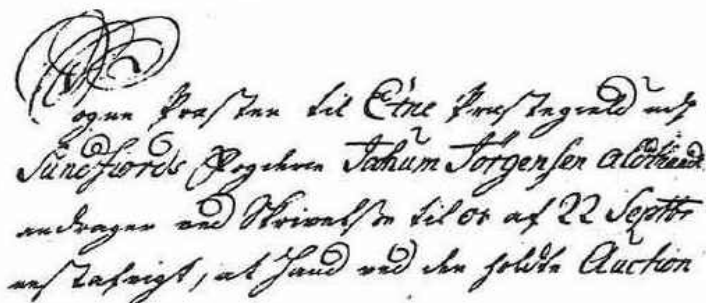 Sogne Præsten til Etne Præstegield udj
Sundfiords Fogderie Jahum Jörgensen
andrager ved Skrivelse til os af 22 Septbr
nestafvigt, at hand ved den holdte Auction